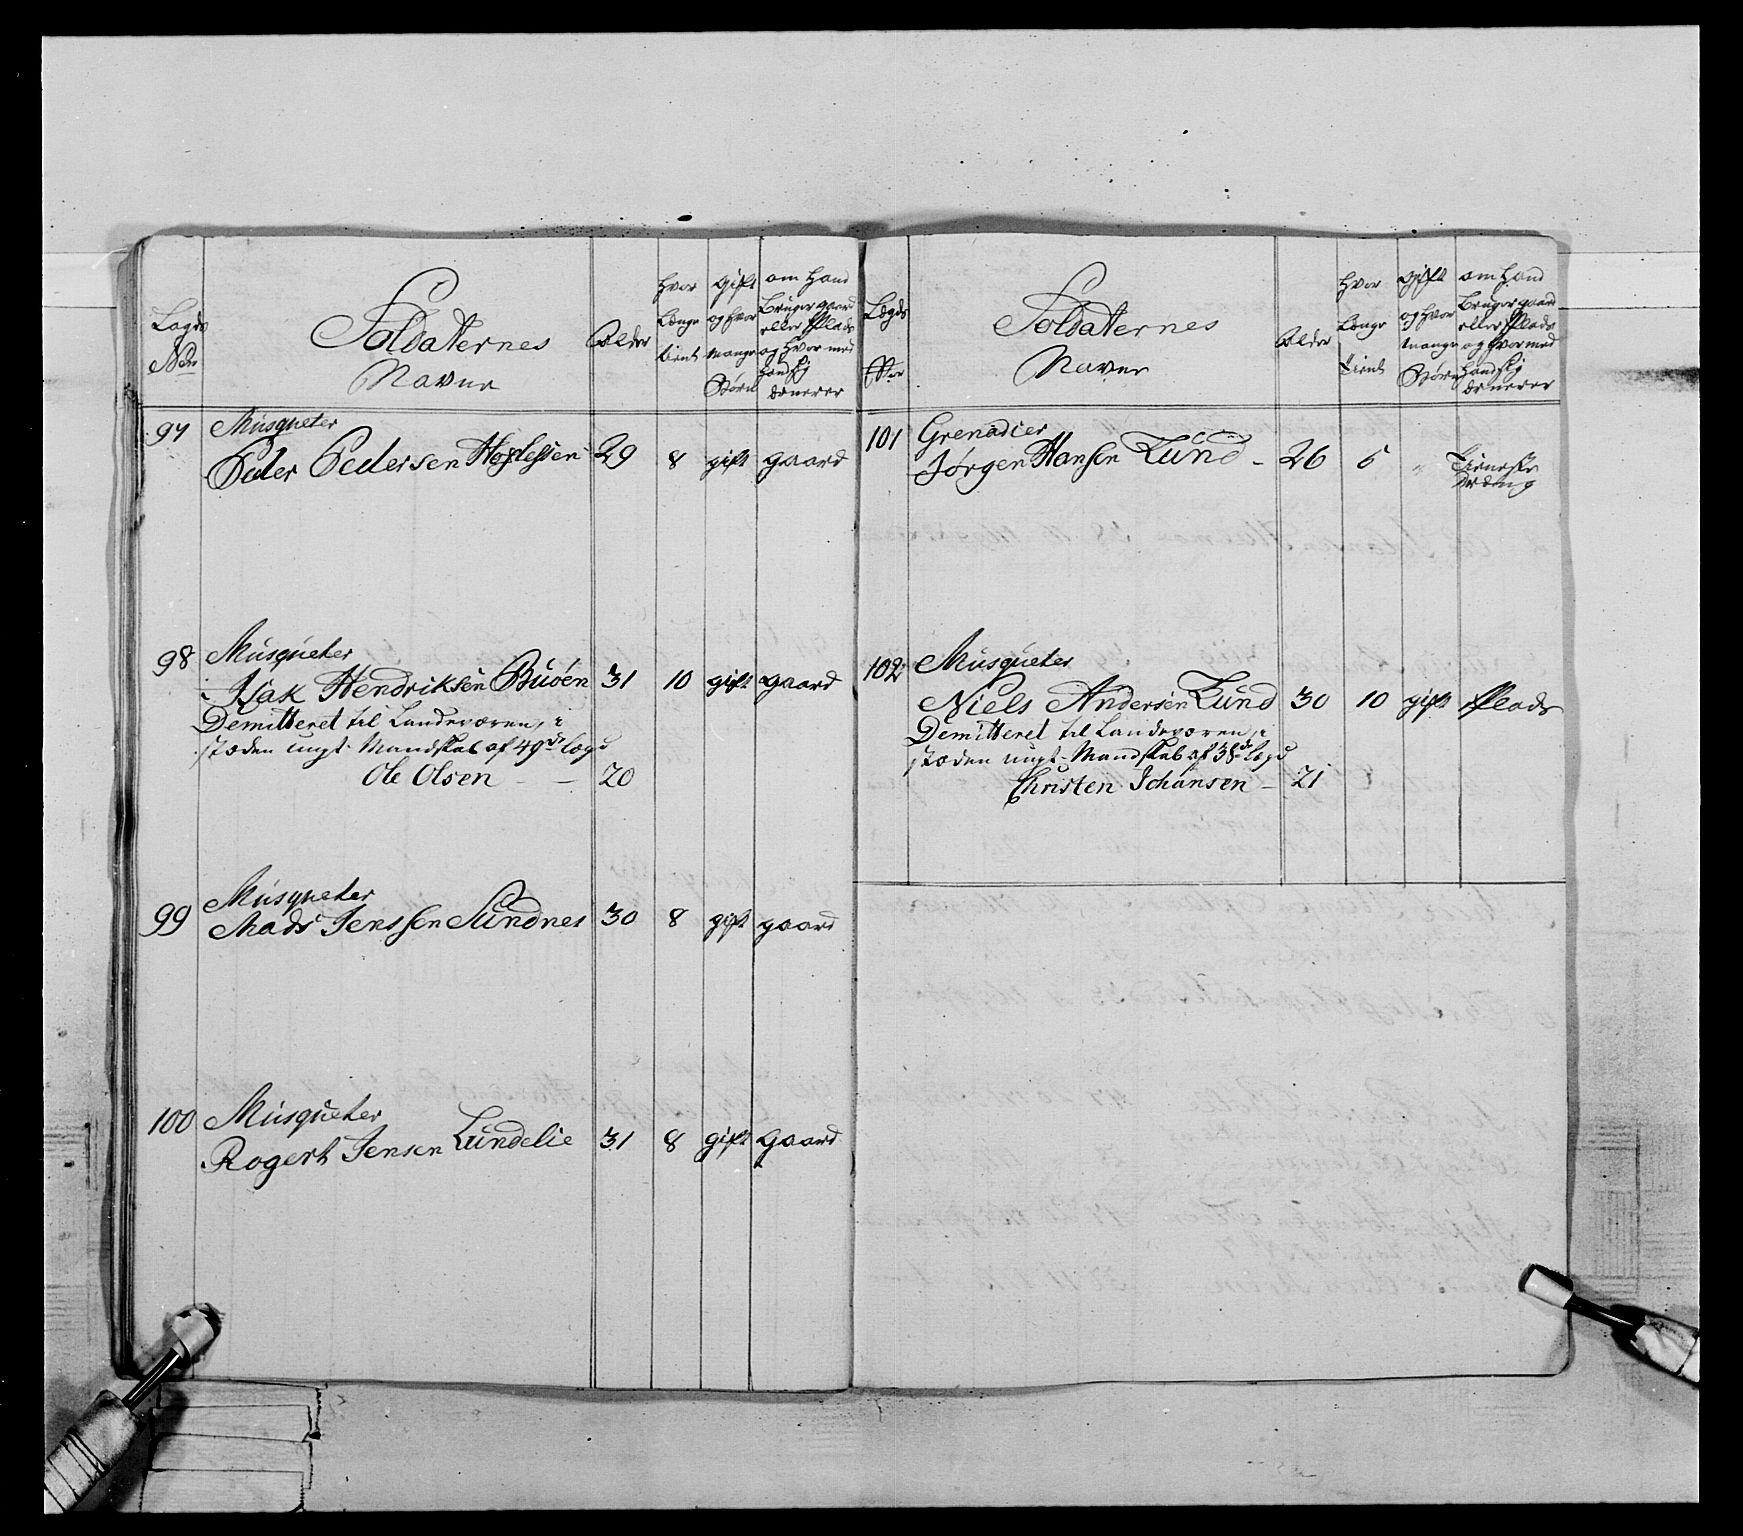 Lægds
No
Soldatternes
Navne
Alder
Hvor
Længe
tient
gift
og hvor
mange
Børn
om Hand
Bruger gaard
eller Plads
og Hvor med
Hand sig
ærnerer
97
Musqueter
Peder Pedersen
29
8
gift
gaard
98
Musqueter
Isak Hendriksen Buøen
31
10
gift
gaard
Demitteret til Landeværen, i
stæden ungt Mandskab af 49de lægd
Ole Olsen - - 20
99
Musqueter
Mads Jenssen Sundnes
30
8
gift
gaard
100
Musqueter
Rogert Jensen Lundelie
31
8
gift
gaard
Lægds
Soldatternes
Navne
Alder
Hvor
Længe
Tient
gift
og hvor
mange
Børn
om Hand
Bruger gaard
eller Plads
og Hvor med
Hand sig
ærnerer
101
Grenadier
Jørgen Hansen Lund -
26
5
"
Tieneste
dræng
102
Musqueter
Niels Andersen Lund
30
10
gift
Plads
Demitteret til Landeværen, i
stæden ungt Mandskab af 38de lægd
Christen Johansen - 21